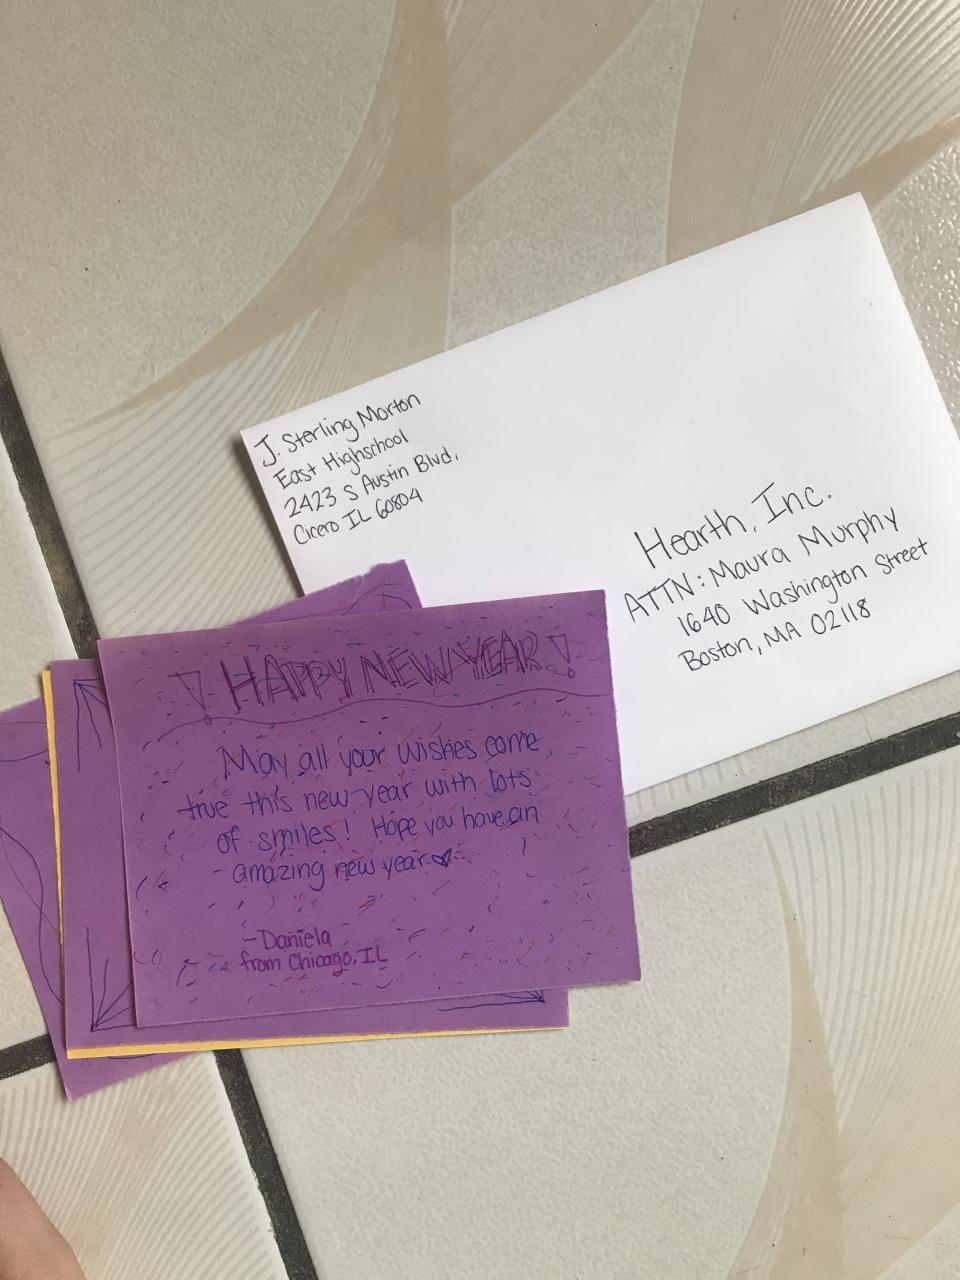 J. Sterling Morton
East Highschool
2423 S Austin Blvd.
Cicero IL 60804
Hearth, Inc.
ATTN: Maura Murphy
1640 Washington Street
Boston, MA 02118
! HAPPY NEW YEAR !
May all your wishes come
true this new year with lots
of smiles! Hope you have an
amazing new year.♥
-Daniela
from Chicago, IL